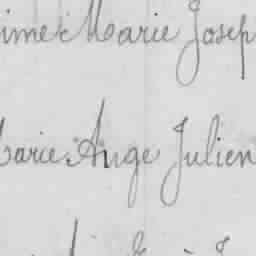 ime Marie Josep
Marie Ange Julien